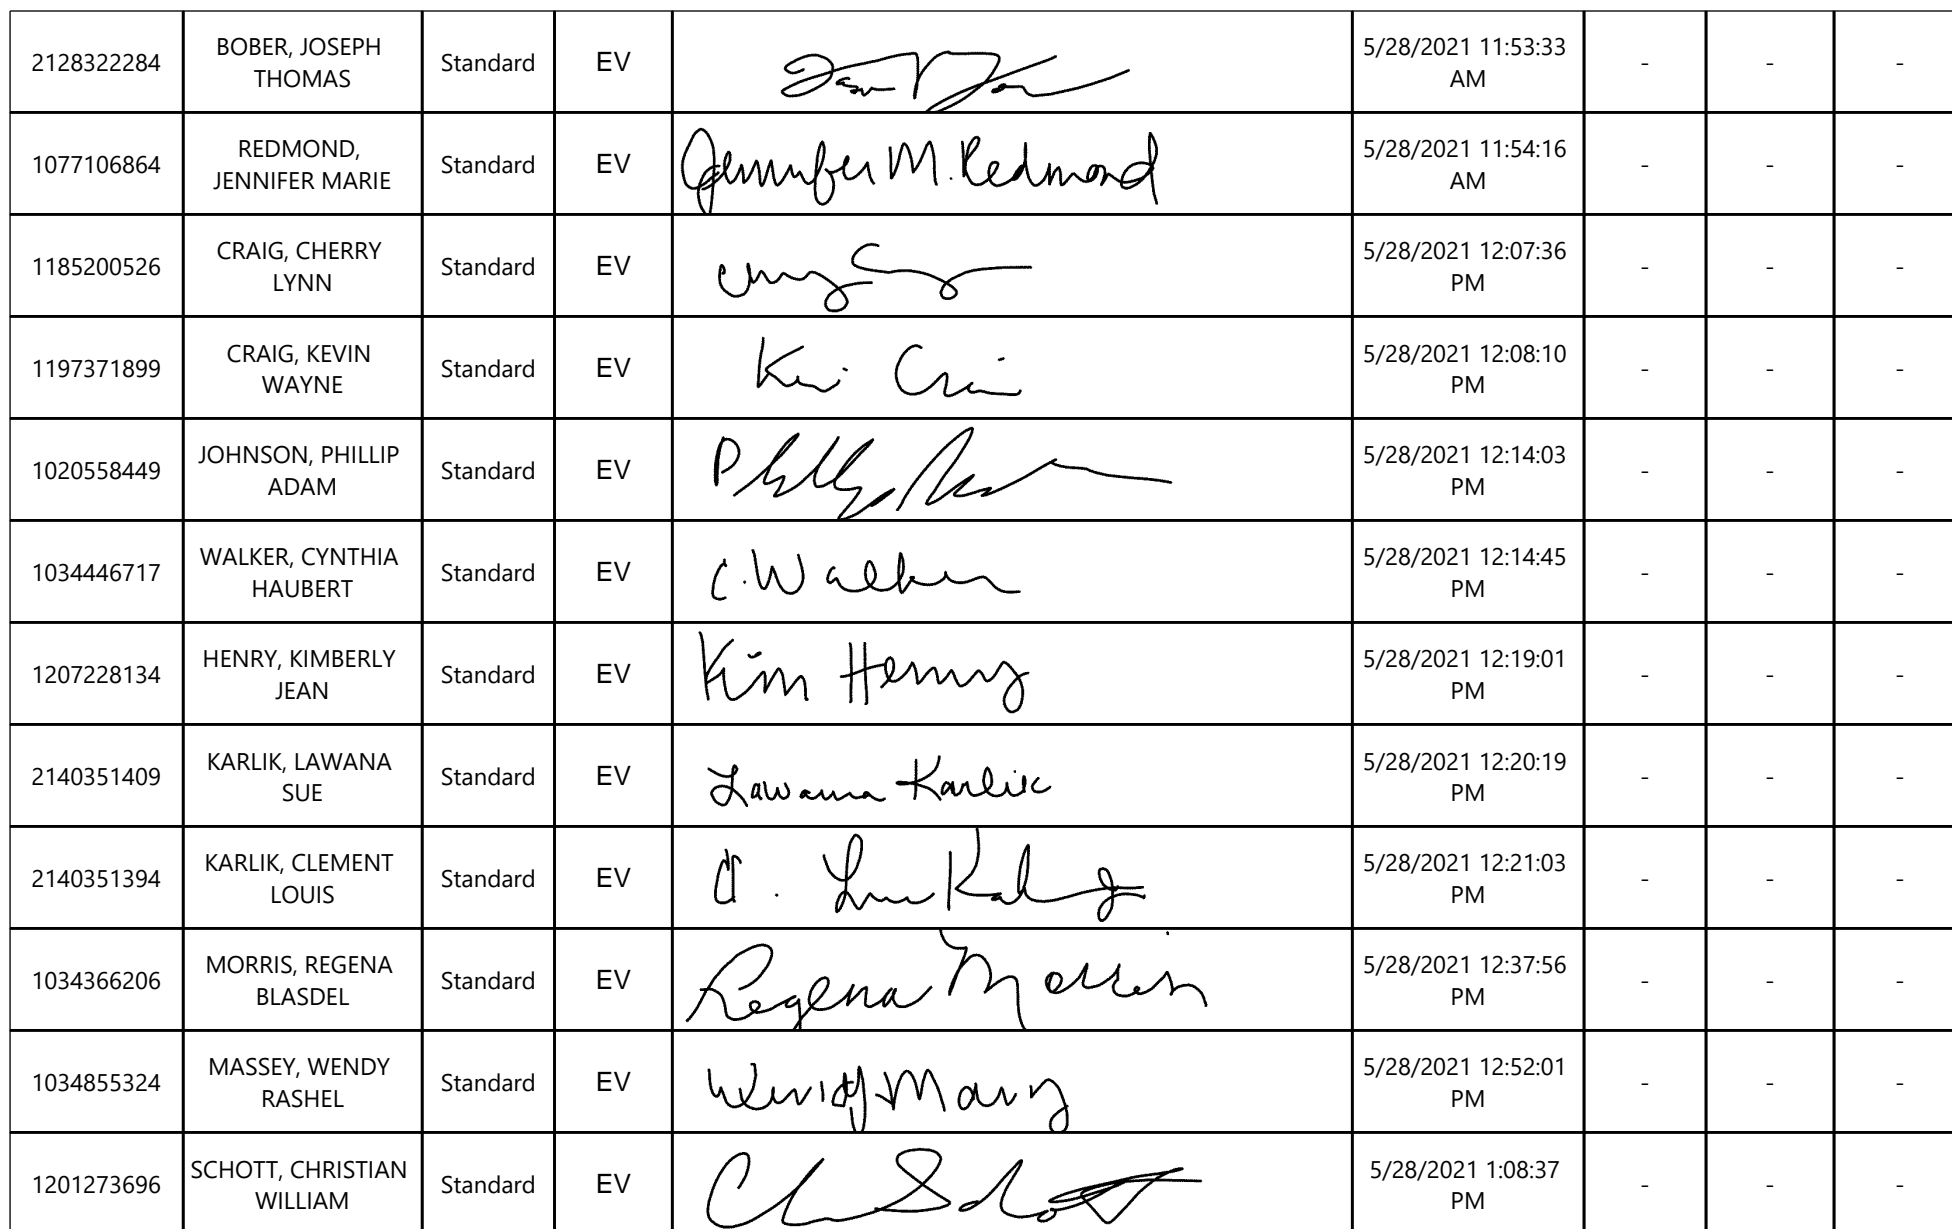 2128322284 BOBER, JOSEPH THOMAS Standard EV 5/28/2021 11:53:33 AM - - -
1077106864 REDMOND, JENNIFER MARIE Standard EV Jennifer M. Redmond 5/28/2021 11:54:16 AM - - -
1185200526 CRAIG, CHERRY LYNN Standard EV 5/28/2021 12:07:36 PM - - -
1197371899 CRAIG, KEVIN WAYNE Standard EV 5/28/2021 12:08:10 PM - - -
1020558449 JOHNSON, PHILLIP ADAM Standard EV 5/28/2021 12:14:03 PM - - -
1034446717 WALKER, CYNTHIA HAUBERT Standard EV C. Walker 5/28/2021 12:14:45 PM - - -
1207228134 HENRY, KIMBERLY JEAN Standard EV Kim Henry 5/28/2021 12:19:01 PM - - -
2140351409 KARLIK, LAWANA SUE Standard EV Lawana Karlik 5/28/2021 12:20:19 PM - - -
2140351394 KARLIK, CLEMENT LOUIS Standard EV 5/28/2021 12:21:03 PM - - -
1034366206 MORRIS, REGENA BLASDEL Standard EV Regena Morris 5/28/2021 12:37:56 PM - - -
1034855324 MASSEY, WENDY RASHEL Standard EV Wendy 5/28/2021 12:52:01 PM - - -
1201273696 SCHOTT, CHRISTIAN WILLIAM Standard EV 5/28/2021 1:08:37 PM - - -